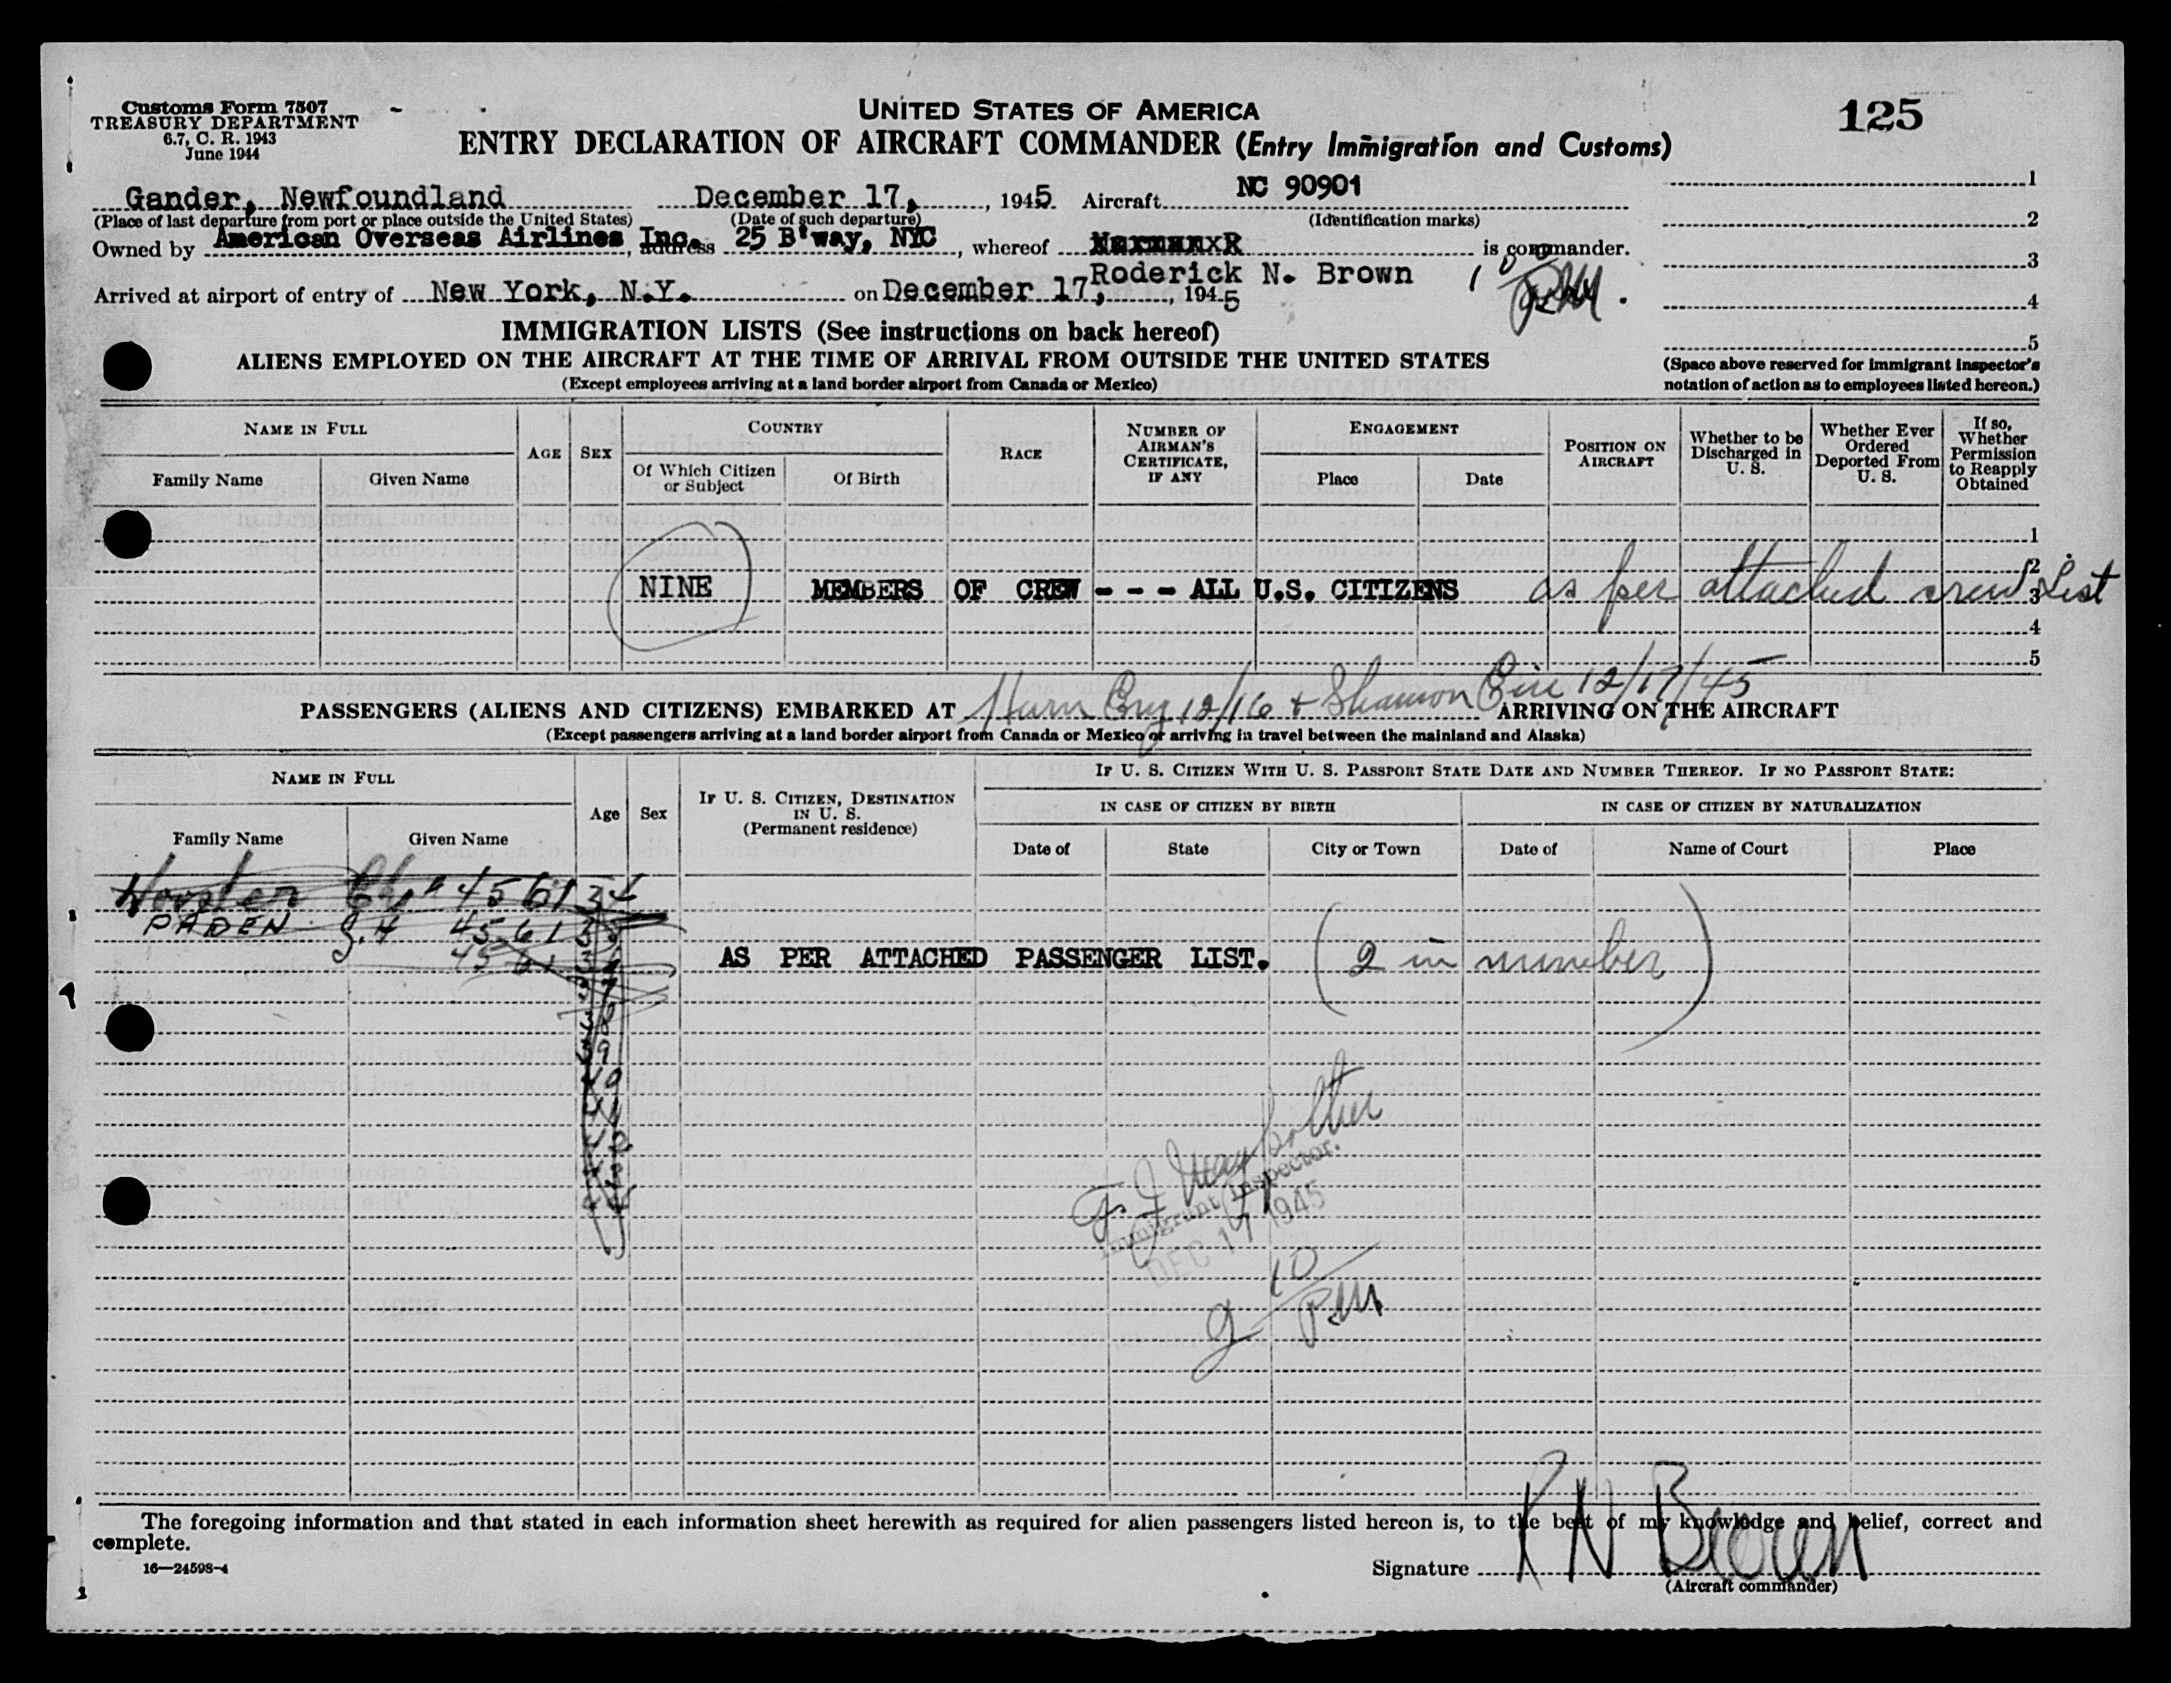 Customs Form 7507
TREASURY DEPARTMENT
6.7, C. R. 1943
June 1944
UNITED STATES OF AMERICA
125
ENTRY DECLARATION OF AIRCRAFT COMMANDER (Entry Immigration and Customs)
Gander, Newfoundland December 17, , 1945. Aircraft NC 90901
(Place of last departure from port or place outside the United States) (Date of such departure) (Identification marks)
Owned by American Overseas Airlines Inc. , address 25 B'way, NYC , whereof is commander.
Roderick N. Brown
Arrived at airport of entry of New York, N.Y. on December 17, , 1945
1
2
3
4
5
IMMIGRATION LISTS (See instructions on back hereof)
ALIENS EMPLOYED ON THE AIRCRAFT AT THE TIME OF ARRIVAL FROM OUTSIDE THE UNITED STATES
(Except employees arriving at a land border airport from Canada or Mexico)
(Space above reserved for immigrant inspector's
notation of action as to employees listed hereon.)
NAME IN FULL
Family Name Given Name
AGE SEX
COUNTRY
Of Which Citizen or Subject
Of Birth
RACE
NUMBER OF AIRMAN'S CERTIFICATE, IF ANY
ENGAGEMENT
Place Date
POSITION ON AIRCRAFT
Whether to be Discharged in U. S.
Whether Ever Ordered Deported From U. S.
If so, Whether Permission to Reapply Obtained
1
2
NINE MEMBERS OF CREW - - - ALL U.S. CITIZENS as per attached crew List 3
4
5
PASSENGERS (ALIENS AND CITIZENS) EMBARKED AT Hurn Eng 12/16 + Shannon Eire 12/17/45 ARRIVING ON THE AIRCRAFT
(Except passengers arriving at a land border airport from Canada or Mexico or arriving in travel between the mainland and Alaska)
NAME IN FULL
Family Name Given Name
Age Sex
IF U. S. CITIZEN, DESTINATION IN U. S.
(Permanent residence)
IF U. S. CITIZEN WITH U. S. PASSPORT STATE DATE AND NUMBER THEREOF. IF NO PASSPORT STATE:
IN CASE OF CITIZEN BY BIRTH IN CASE OF CITIZEN BY NATURALIZATION
Date of State City or Town Date of Name of Court Place
4561 34
PADEN J.H 4561 35
4561 36
AS PER ATTACHED PASSENGER LIST. (2 in number)
37
38
39
40
41
42
43
44
Immigrant Inspector.
DEC 17 1945
10
The foregoing information and that stated in each information sheet herewith as required for alien passengers listed hereon is, to the best of my knowledge and belief, correct and
complete.
16—24598-4
Signature R N Brown
(Aircraft commander)